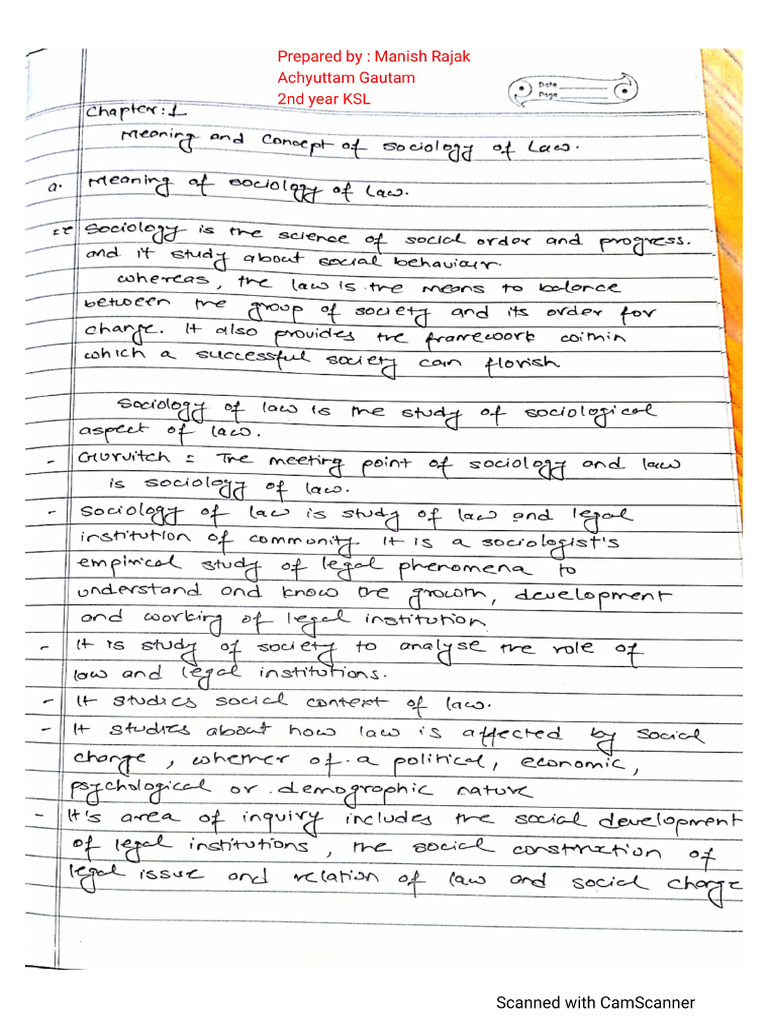 Prepared by : Manish Rajak
Achyuttam Gautam
2nd year KSL
Date
Page
Chapter: 1
Meaning and concept of sociology of Law.
a. Meaning of sociology of Law.
Sociology is the science of social order and progress.
and it study about social behaviour.
whereas, the law is the means to balance
between the group of society and its order for
change. It also provides the framework within
which a successful society can florish
Sociology of law is the study of sociological
aspect of law.
- Gurvitch = The meeting point of sociology and law
is sociology of law.
- Sociology of law is study of law and legal
institution of community. It is a sociologist's
empirical study of legal phenomena to
understand and know the growth, development
and working of legal institution.
- It is study of society to analyse the role of
law and legal institutions.
- It studies social context of law.
- It studies about how law is affected by social
change, whether of a political, economic,
psychological or demographic nature
- It's area of inquiry includes the social development
of legal institutions, the social construction of
legal issue and relation of law and social change
Scanned with CamScanner